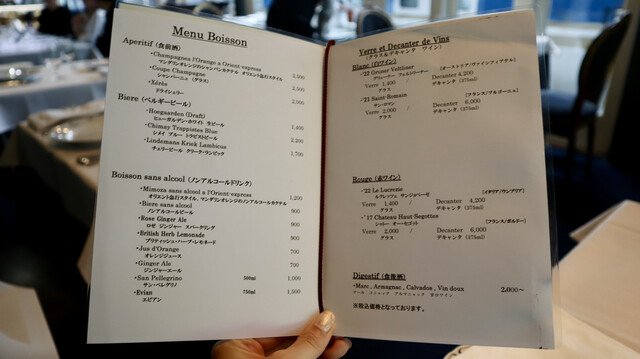 Menu Boisson
Aperitif (食前酒)
・Champagnes l'Orange a Orient-express
マンダリンオレンジのシャンパンカクテル オリエント急行スタイル 2,500
・Coupe Champagne
シャンパーニュ (グラス) 2,500
・Xérès
ドライシェリー 2,000
Biere (ベルギービール)
・Hoegaarden (Draft)
ヒューガルデン・ホワイト 生ビール 1,400
・Chimay Trappistes Blue
シメイ ブルー トラピストビール 2,200
・Lindemans Kriek Lambicus
チェリービール クリーク・ランビック 1,700
Boisson sans alcool (ノンアルコールドリンク)
・Mimoza sans alcool a l'Orient'express
オリエント急行スタイル、マンダリンオレンジのノンアルコールカクテル 1,200
・Biere sans alcool
ノンアルコールビール 900
・Rose Ginger Ale
ロゼ ジンジャー スパークリング 900
・British Herb Lemonade
ブリティッシュ・ハーブ・レモネード 900
・Jus d'Orange
オレンジジュース 700
・Ginger Ale
ジンジャーエール 700
・San Pellegrino 500ml 1,000
サン・ペレグリノ
・Evian 750ml 1,500
エビアン
Verre et Decanter de Vins
(グラス&デキャンタ ワイン)
Blanc (白ワイン)
・'22 Gruner Veltliner [オーストリア/ヴァインフィアテル]
グリューナー フェルトリーナー
Verre 1,400 / Decanter 4,200
グラス デキャンタ (375ml)
・'21 Saint-Romain [フランス/ブルゴーニュ]
サン・ロマン
Verre 2,000 / Decanter 6,000
グラス デキャンタ (375ml)
Rouge (赤ワイン)
・'22 Le Lucrezie [イタリア/ウンブリア]
サンジョベーゼ
Verre 1,400 / Decanter 4,200
グラス デキャンタ (375ml)
・'17 Chateau Haut-Segottes [フランス/ボルドー]
シャトー オー・セゴット
Verre 2,000 / Decanter 6,000
グラス デキャンタ (375ml)
Digestif (食後酒)
・Marc , Armagnac , Calvados , Vin doux 2,000～
マール コニャック アルマニャック 甘口ワイン
※税込価格となっております。